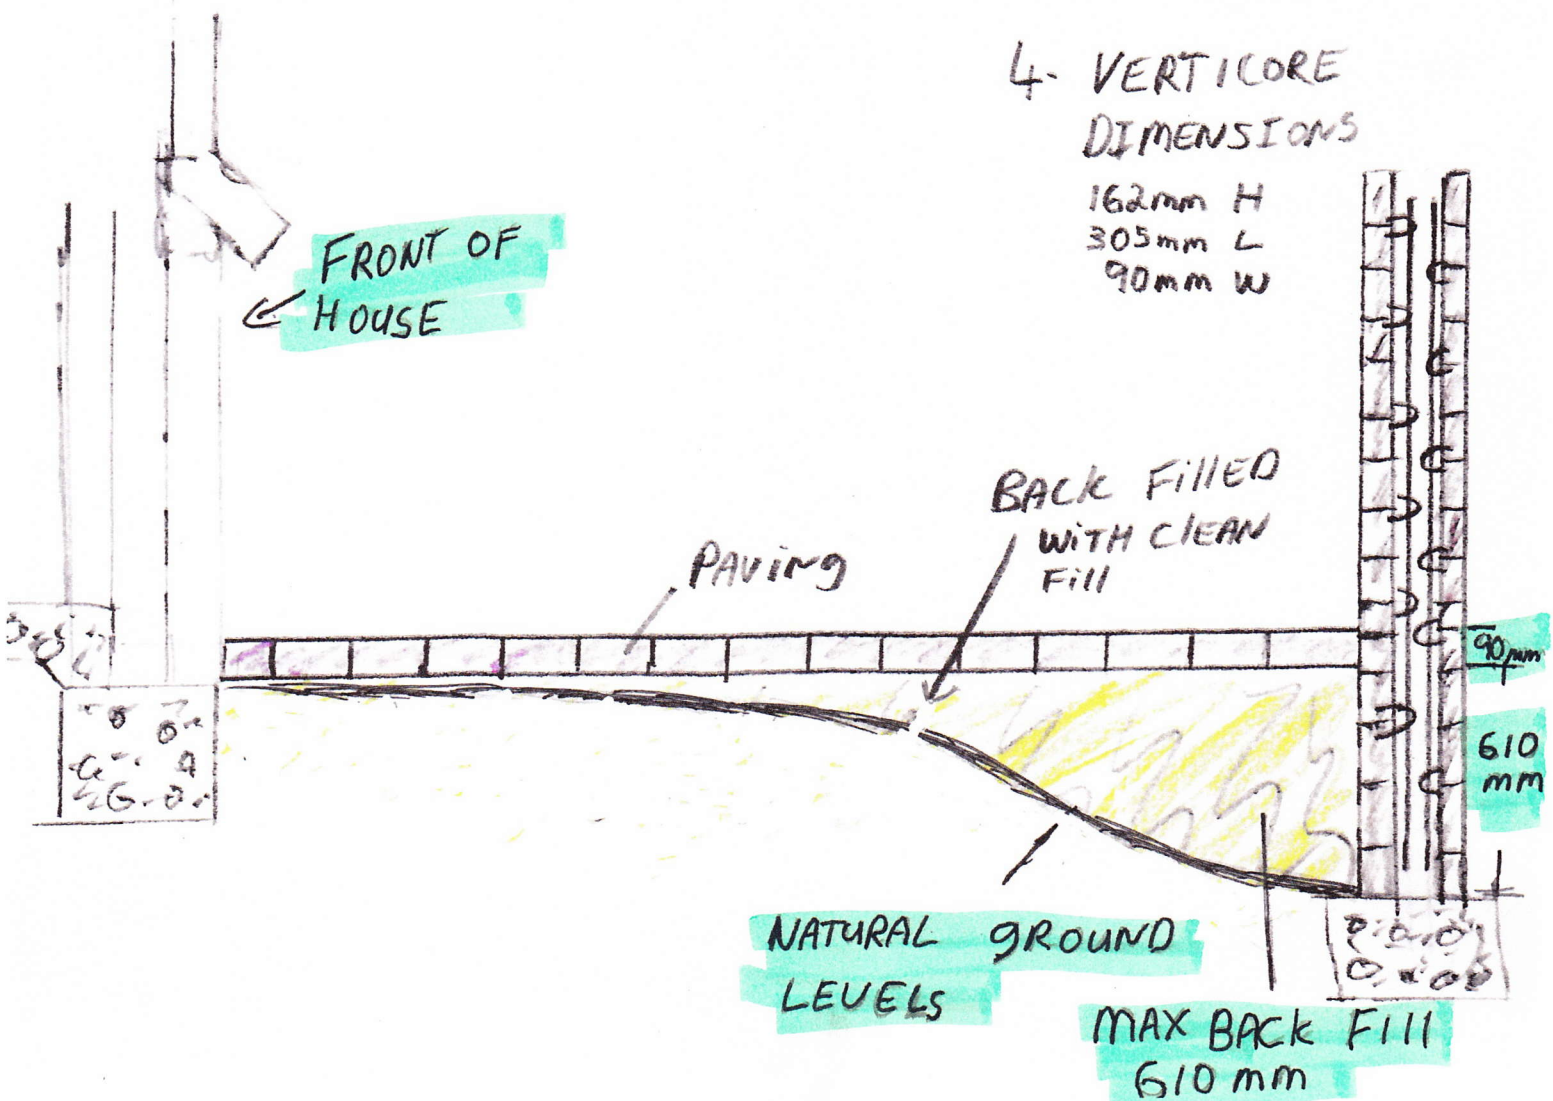 4. VERTICORE
DIMENSIONS
162mm H
305mm L
90mm W
FRONT OF
HOUSE
BACK FillED
WiTH ClEAN
Fill
PAVING
90mm
610
mm
NATURAL gROUND
LEVELS
MAX BACK Fill
610 mm